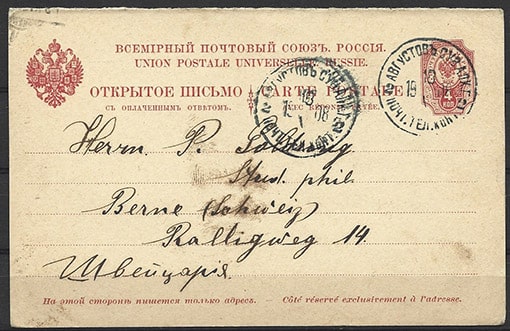 ВСЕМІРНЫЙ ПОЧТОВЫЙ СОЮЗЪ. РОССІЯ.
UNION POSTALE UNIVERSELLE. RUSSIE.
ОТКРЫТОЕ ПИСЬМО — CARTE POSTALE
СЪ ОПЛАЧЕННЫМЪ ОТВѢТОМЪ. AVEC RÉPONSE
АВГУСТОВЪ СУВАЛК.
19 08
ПОЧТ. ТЕЛ. КОНТ.
АВГУСТОВЪ СУВАЛК.
19 08
ПОЧТ. ТЕЛ. КОНТ.
КОП
Herrn P.
Stud. phil.
Berne (Schweiz)
Ralligweg 14.
Швейцарія.
На этой сторонѣ пишется только адресъ. — Côté réservé exclusivement à l'adresse.